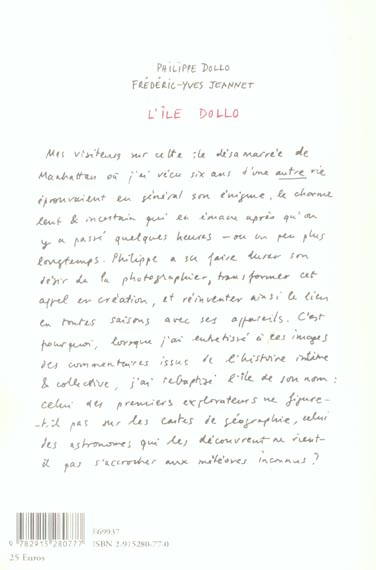 PHILIPPE DOLLO
FRÉDÉRIC-YVES JEANNET
L'ÎLE DOLLO
Mes visiteurs sur cette île désamarrée de
Manhattan où j'ai vécu six ans d'une autre vie
éprouvaient en général son énigme, le charme
lent & incertain qui en émane après qu'on
y a passé quelques heures – ou un peu plus
longtemps. Philippe a su faire durer son
désir de la photographier, transformer cet
appel en création, et réinventer ainsi le lieu
en toutes saisons avec ses appareils. C'est
pourquoi, lorsque j'ai entretissé à ces images
des commentaires issus de l'histoire intime
& collective, j'ai rebaptisé l'île de son nom :
celui des premiers explorateurs ne figure-
-t-il pas sur les cartes de géographie, celui
des astronomes qui les découvrent ne vient-
il pas s'accrocher aux météores inconnus ?
F69937
9 782915 280777
ISBN 2-915280-77-0
25 Euros